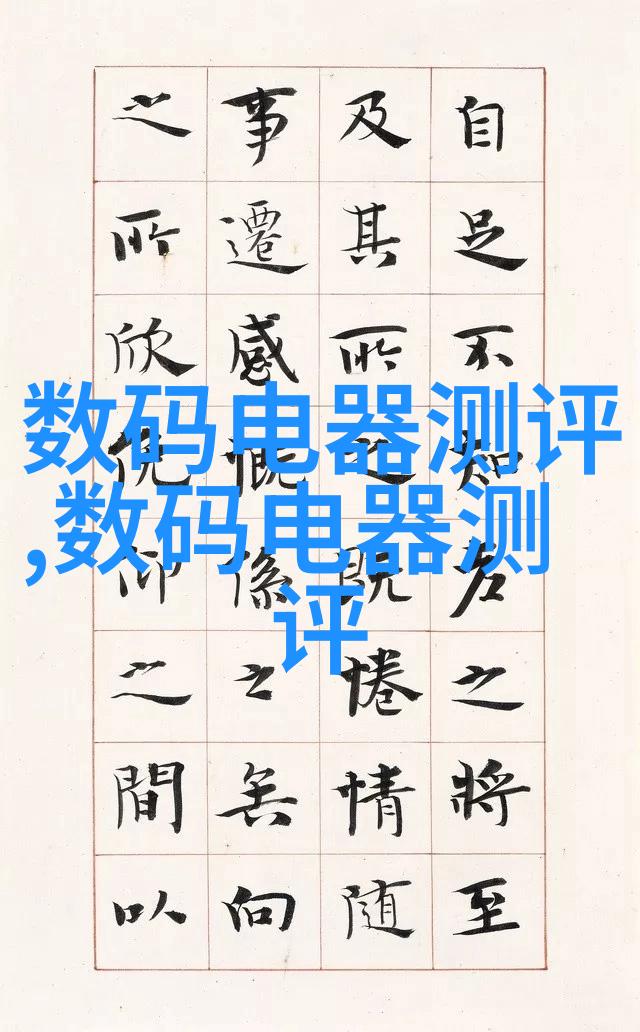 自足不知老之將至
及其所之既惓情隨
事遷感慨係之矣向
之所欣俛仰之間以
数码电器测评
,数码电器测
评